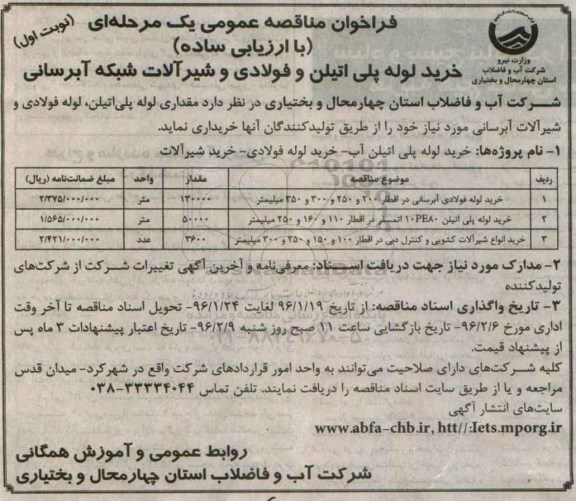 فراخوان مناقصه عمومی یک مرحله‌ای
(نوبت اول)
(با ارزیابی ساده)
خرید لوله پلی اتیلن و فولادی و شیرآلات شبکه آبرسانی
وزارت نیرو
شرکت آب و فاضلاب
استان چهارمحال و بختیاری
شرکت آب و فاضلاب استان چهارمحال و بختیاری در نظر دارد مقداری لوله پلی‌اتیلن، لوله فولادی و
شیرآلات آبرسانی مورد نیاز خود را از طریق تولیدکنندگان آنها خریداری نماید.
۱- نام پروژه‌ها: خرید لوله پلی اتیلن آب- خرید لوله فولادی- خرید شیرآلات
ردیف موضوع مناقصه مقدار واحد مبلغ ضمانت‌نامه (ریال)
۱ خرید لوله فولادی آبرسانی در اقطار ۲۰۰ و ۲۵۰ و ۳۰۰ و ۳۵۰ میلیمتر ۱۳۰۰۰۰ متر ۲/۳۷۵/۰۰۰/۰۰۰
۲ خرید لوله پلی اتیلن ۱۰PE۸۰ اتمسفر در اقطار ۱۱۰ و ۱۶۰ و ۲۵۰ میلیمتر ۵۰۰۰۰ متر ۱/۵۶۵/۰۰۰/۰۰۰
۳ خرید انواع شیرآلات کشویی و کنترل دبی در اقطار ۱۰۰ و ۱۵۰ و ۲۵۰ و ۳۰۰ میلیمتر ۳۶۰۰ عدد ۲/۴۲۱/۰۰۰/۰۰۰
۲- مدارک مورد نیاز جهت دریافت اسناد: معرفی‌نامه و آخرین آگهی تغییرات شرکت از شرکت‌های
تولیدکننده
۳- تاریخ واگذاری اسناد مناقصه: از تاریخ ۹۶/۱/۱۹ لغایت ۹۶/۱/۲۴- تحویل اسناد مناقصه تا آخر وقت
اداری مورخ ۹۶/۲/۶- تاریخ بازگشایی ساعت ۱۱ صبح روز شنبه ۹۶/۲/۹- تاریخ اعتبار پیشنهادات ۳ ماه پس
از پیشنهاد قیمت.
کلیه شرکت‌های دارای صلاحیت می‌توانند به واحد امور قراردادهای شرکت واقع در شهرکرد- میدان قدس
مراجعه و یا از طریق سایت اسناد مناقصه را دریافت نمایند. تلفن تماس ۳۳۳۳۴۰۴۴-۰۳۸
سایت‌های انتشار آگهی
www.abfa-chb.ir, htt//:Iets.mporg.ir
روابط عمومی و آموزش همگانی
شرکت آب و فاضلاب استان چهارمحال و بختیاری